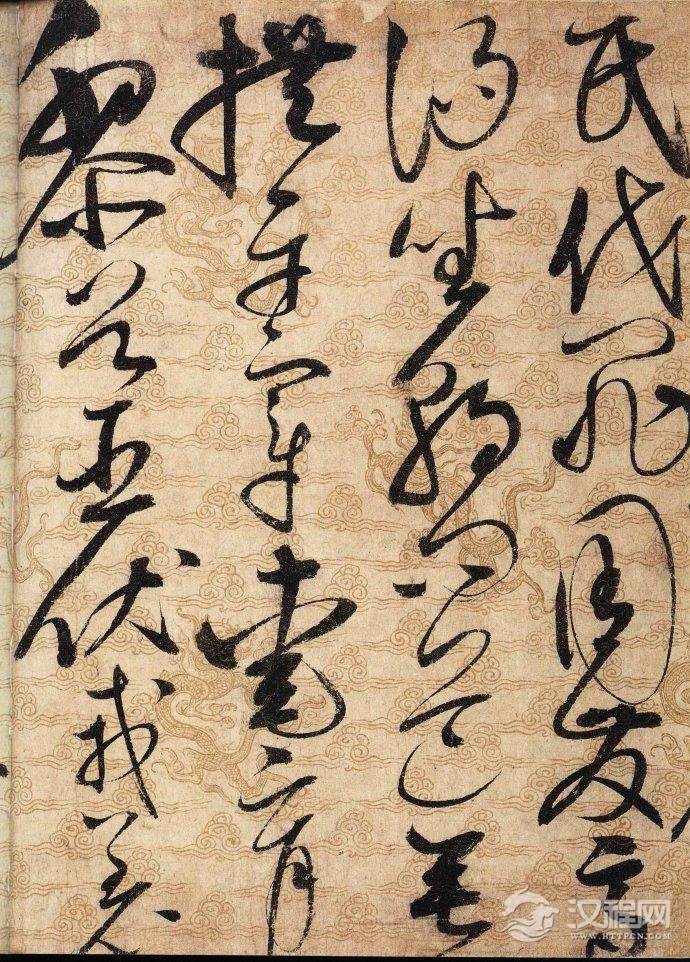 民伐罪周發商
湯坐朝問道垂
拱平章愛育
黎首臣伏戎羌
汉程网
WWW.HTTPCN.COM